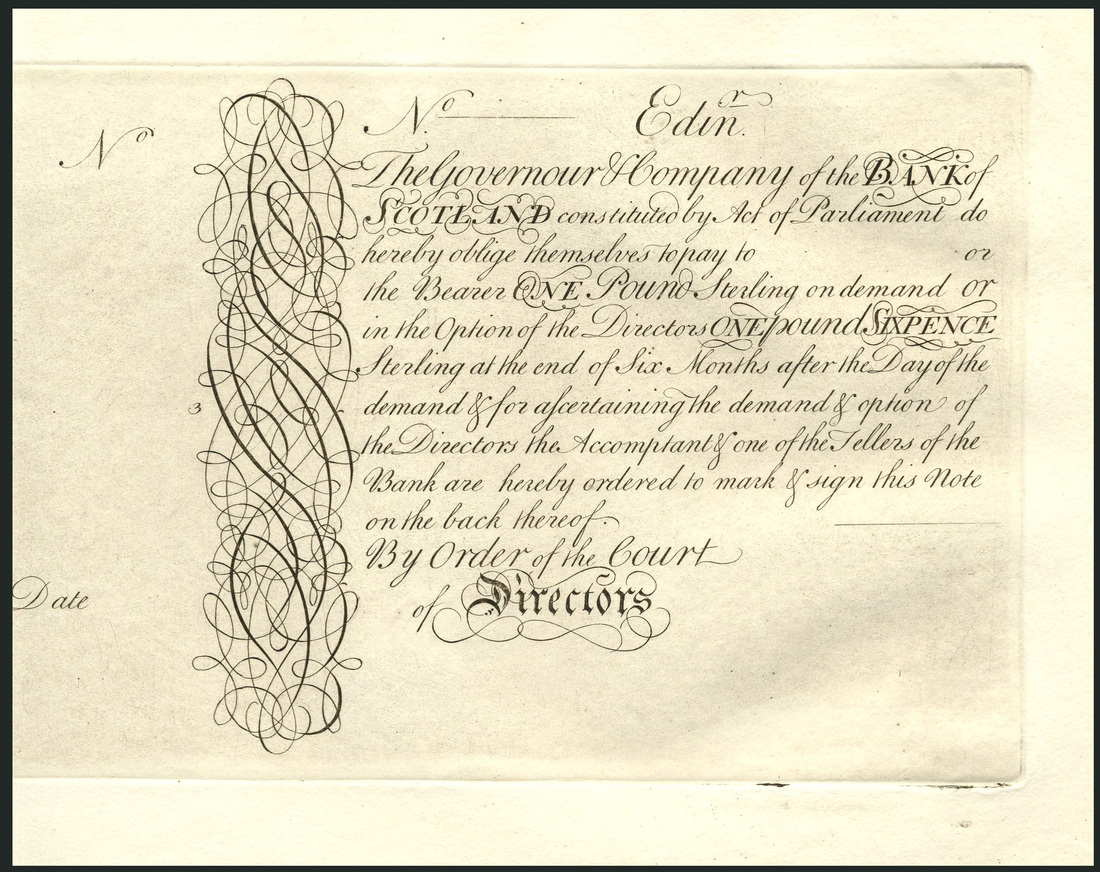 No
No. Edinr.
The Governour & Company of the BANK of
SCOTLAND constituted by Act of Parliament do
hereby oblige themselves to pay to or
the Bearer ONE Pound Sterling on demand or
in the Option of the Directors ONE pound SIXPENCE
Sterling at the end of Six Months after the Day of the
demand & for ascertaining the demand & option of
the Directors the Accomptant & one of the Tellers of the
Bank are hereby ordered to mark & sign this Note
on the back thereof.
By Order of the Court
of Directors
3
Date